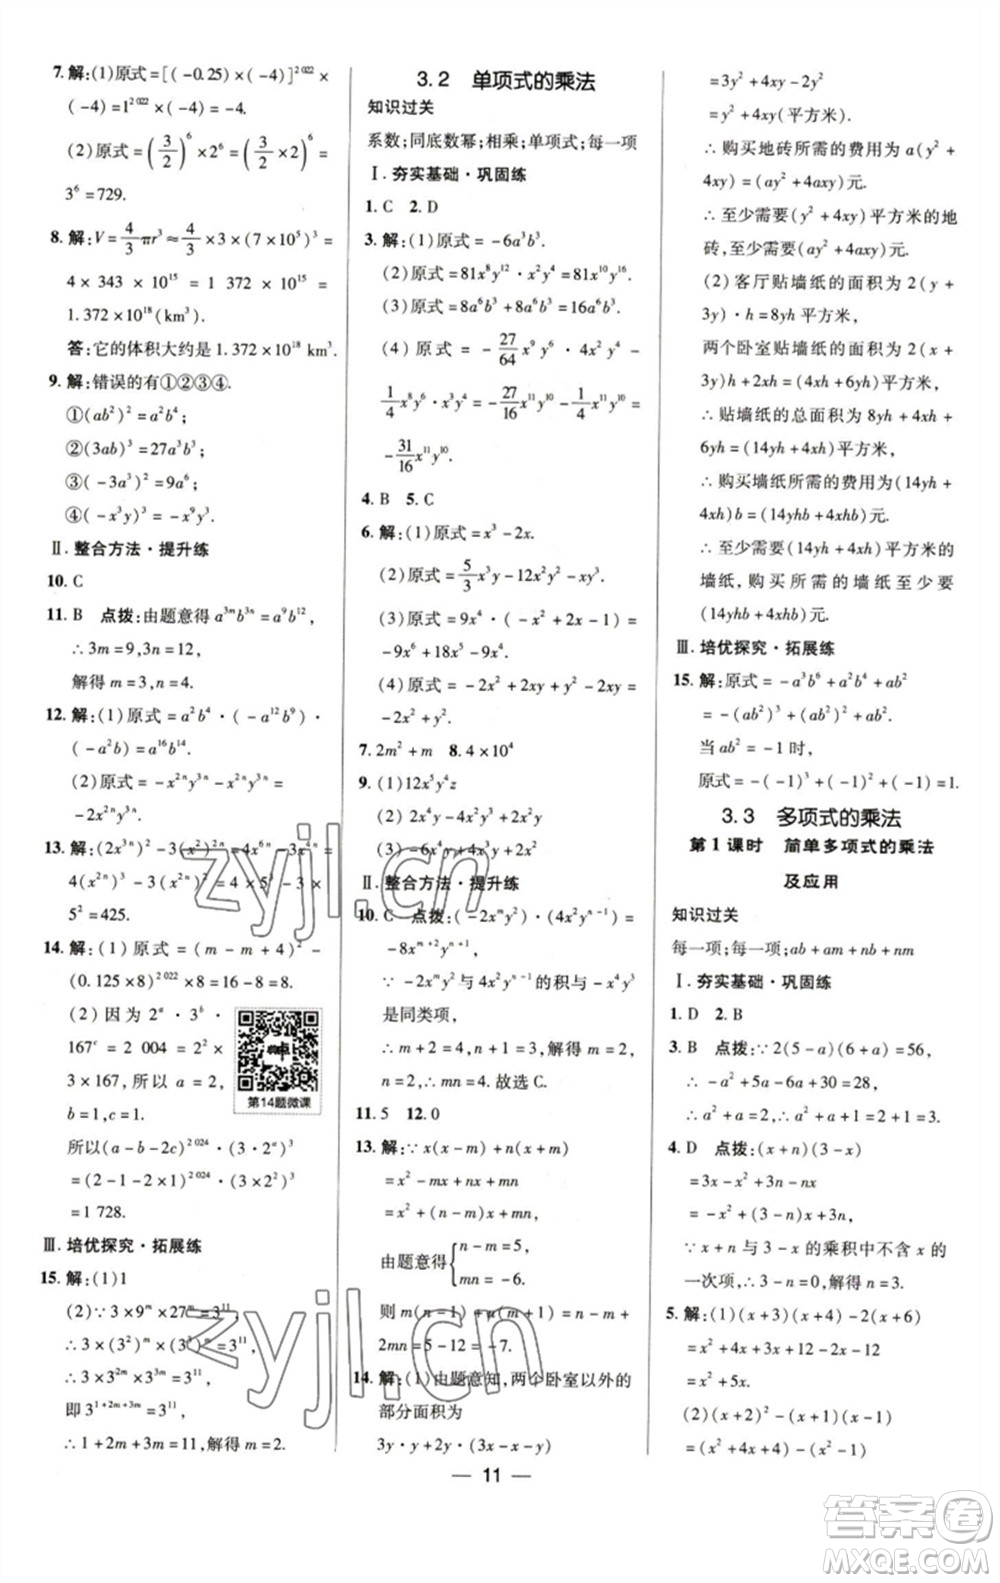 7. 解:(1)原式=[(-0.25)×(-4)]^2 022×
(-4)=1^2 022×(-4)=-4.
(2)原式=(3/2)^6×2^6=(3/2×2)^6=
3^6=729.
8. 解:V=4/3πr^3≈4/3×3×(7×10^5)^3=
4×343×10^15=1 372×10^15=
1.372×10^18(km^3).
答:它的体积大约是1.372×10^18 km^3.
9. 解:错误的有①②③④.
①(ab^2)^2=a^2b^4;
②(3ab)^3=27a^3b^3;
③(-3a^3)^2=9a^6;
④(-x^3y)^3=-x^9y^3.
Ⅱ. 整合方法·提升练
10. C
11. B 点拨:由题意得a^3mb^3n=a^9b^12,
∴3m=9,3n=12,
解得m=3,n=4.
12. 解:(1)原式=a^2b^4·(-a^12b^9)·
(-a^2b)=a^16b^14.
(2)原式=-x^2ny^3n-x^2ny^3n=
-2x^2ny^3n.
13. 解:(2x^3n)^2-3(x^2)^2n=4x^6n-3x^4n=
4(x^2n)^3-3(x^2n)^2=4×5^3-3×
5^2=425.
14. 解:(1)原式=(m-m+4)^2-
(0.125×8)^2 022×8=16-8=8.
(2)因为2^a·3^b·
167^c=2 004=2^2×
3×167,所以a=2,
b=1,c=1.
第14题微课
所以(a-b-2c)^2 024·(3·2^a)^3
=(2-1-2×1)^2 024·(3×2^2)^3
=1 728.
Ⅲ. 培优探究·拓展练
15. 解:(1)1
(2)∵3×9^m×27^m=3^11,
∴3×(3^2)^m×(3^3)^m=3^11,
∴3×3^2m×3^3m=3^11,
即3^1+2m+3m=3^11,
∴1+2m+3m=11,解得m=2.
3.2 单项式的乘法
知识过关
系数;同底数幂;相乘;单项式;每一项
Ⅰ. 夯实基础·巩固练
1. C 2. D
3. 解:(1)原式=-6a^3b^3.
(2)原式=81x^8y^12·x^2y^4=81x^10y^16.
(3)原式=8a^6b^3+8a^6b^3=16a^6b^3.
(4)原式=-27/64x^9y^6·4x^2y^4-
1/4x^8y^6·x^3y^4=-27/16x^11y^10-1/4x^11y^10=
-31/16x^11y^10.
4. B 5. C
6. 解:(1)原式=x^3-2x.
(2)原式=5/3x^3y-12x^2y^2-xy^3.
(3)原式=9x^4·(-x^2+2x-1)=
-9x^6+18x^5-9x^4.
(4)原式=-2x^2+2x^2y-2x^2y=
-2x^2.
7. 2m^2+m 8. 4×10^4
9. (1)12x^5y^4z
(2)2x^4y-4x^3y^2+2x^2y
(3)-6x^4y^3+2x^3y^2
Ⅱ. 整合方法·提升练
10. C 点拨:(-2x^my)·(4x^2y^n-1)=
-8x^m+2y^n.
∵-2x^my与4x^2y^n-1的积与-4x^4y^3
是同类项,
∴m+2=4,n=3,解得m=2,
n=3,∴mn=6.故选C.
11. 5 12. 0
13. 解:∵x(x-m)+n(x+m)
=x^2-mx+nx+mn
=x^2+(n-m)x+mn,
由题意得{n-m=5,
mn=-6.
则m(n-1)+n(m+1)=n-m+
2mn=5-12=-7.
14. 解:(1)由题意知,两个卧室以外的
部分面积为
3y·y+2y·(3x-x-y)
=3y^2+4xy-2y^2
=y^2+4xy(平方米).
∴购买地砖所需的费用为a(y^2+
4xy)=(ay^2+4axy)元.
∴至少需要(y^2+4xy)平方米的地
砖,至少需要(ay^2+4axy)元.
(2)客厅贴墙纸的面积为2(y+
3y)·h=8yh(平方米),
两个卧室贴墙纸的面积为2(x+
3y)h+2xh=(4xh+6yh)平方米,
∴贴墙纸的总面积为8yh+4xh+
6yh=(14yh+4xh)平方米,
∴购买墙纸所需的费用为(14yh+
4xh)b=(14yhb+4xhb)元.
∴至少需要(14yh+4xh)平方米的
墙纸,购买所需的费用至少为
(14yhb+4xhb)元.
Ⅲ. 培优探究·拓展练
15. 解:原式=-a^3b^6+a^2b^4+ab^2
=-(ab^2)^3+(ab^2)^2+ab^2.
当ab^2=-1时,
原式=-(-1)^3+(-1)^2+(-1)=1.
3.3 多项式的乘法
第1课时 简单多项式的乘法
及应用
知识过关
每一项;每一项;ab+am+nb+nm
Ⅰ. 夯实基础·巩固练
1. D 2. B
3. B 点拨:∵2(5-a)(6+a)=56,
∴-a^2-a+30=28,
∴a^2+a=2,∴a^2+a+1=3.
4. D 点拨:(x+n)(3-x)=
3x-x^2+3n-nx=
-x^2+(3-n)x+3n,
∵x+n与3-x的乘积中不含x的
一次项,∴3-n=0,解得n=3.
5. 解:(1)(x+3)(x+4)-2(x+6)
=x^2+4x+3x+12-2x-12
=x^2+5x.
(2)(x+2)^2-(x+1)(x-1)
=(x^2+4x+4)-(x^2-1)
11
zyjl.cn
zyjl.cn
答案圈
MXQE.COM